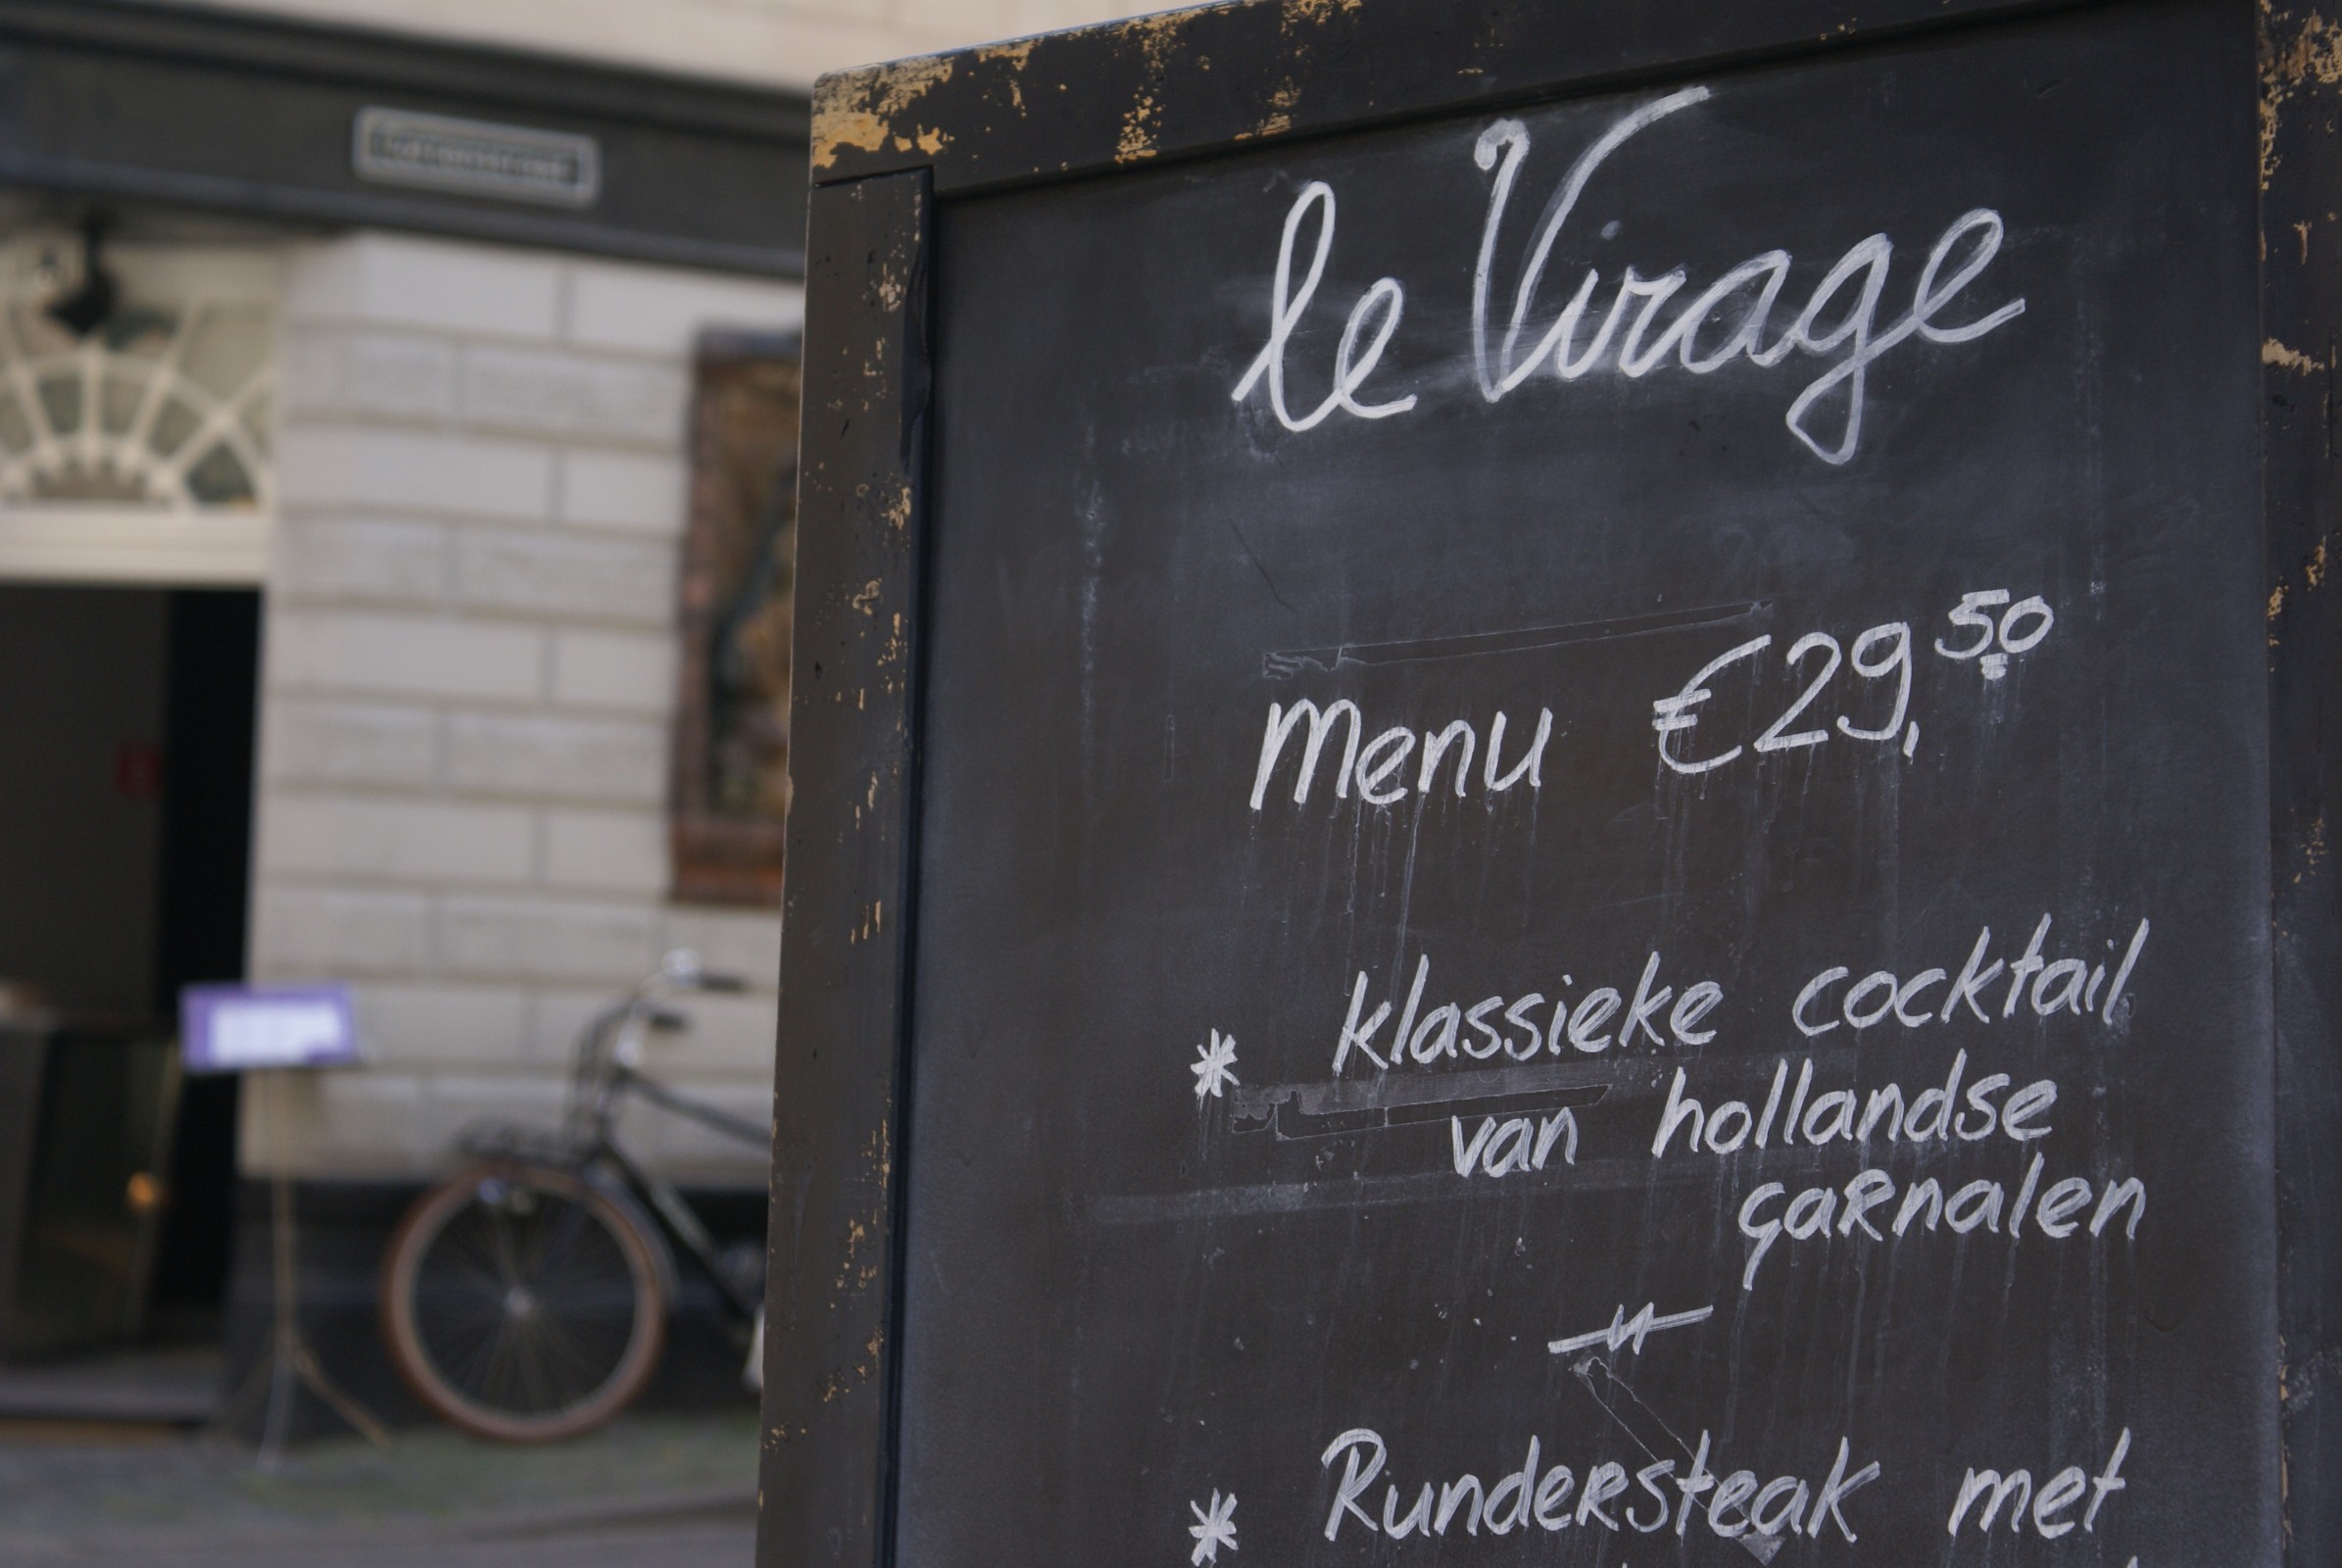 le Virage
menu €29,50
* klassieke cocktail
van hollandse
garnalen
* Rundersteak met